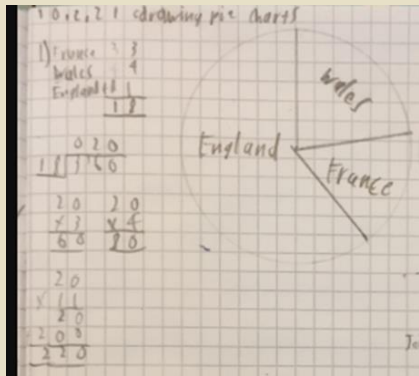 10.2.21 drawing pie charts
1) France 3
Wales 4
England 11
18
020
18)360
20 20
x3 x4
60 80
20
x11
20
200
220
Wales
England
France